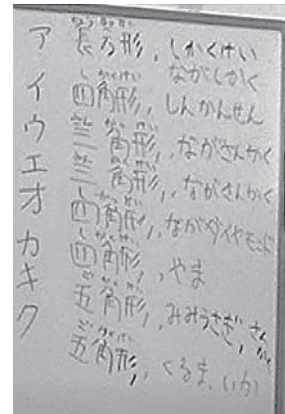 ア 長方形, しかくけい
ながしかく
イ 四角形, しんかんせん
ウ 三角形, ながさんかく
エ 三角形, ながさんかく
オ 四角形, ながダイヤモンド
カ 四角形, やま
キ 五角形, みみうさぎ, さんかく
ク 五角形, くるま, いか